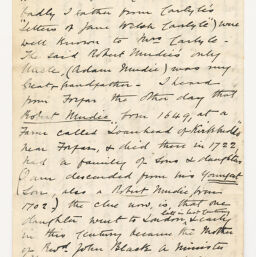 Ladly I father from Carlyle's
"Letters of Jane Welsh Carlyle) were
well known to Mrs Carlyle -
The said Robert Mudie's only
Uncle - (Adam Mudie) was my
Great-grandfather - I heard
from Forfar the other day that
Robert Mudie, born 1649, at a
Farm called Loanhead of Kirkbuddo
near Forfar, & died there in 1722,
had a family of Sons & daughters
(I am descended from his Youngest
Son, also a Robert Mudie born
1702) the clue now, is, that one
daughter went to London, & early
in this Century became the Mother
of Revd John Black a Minister